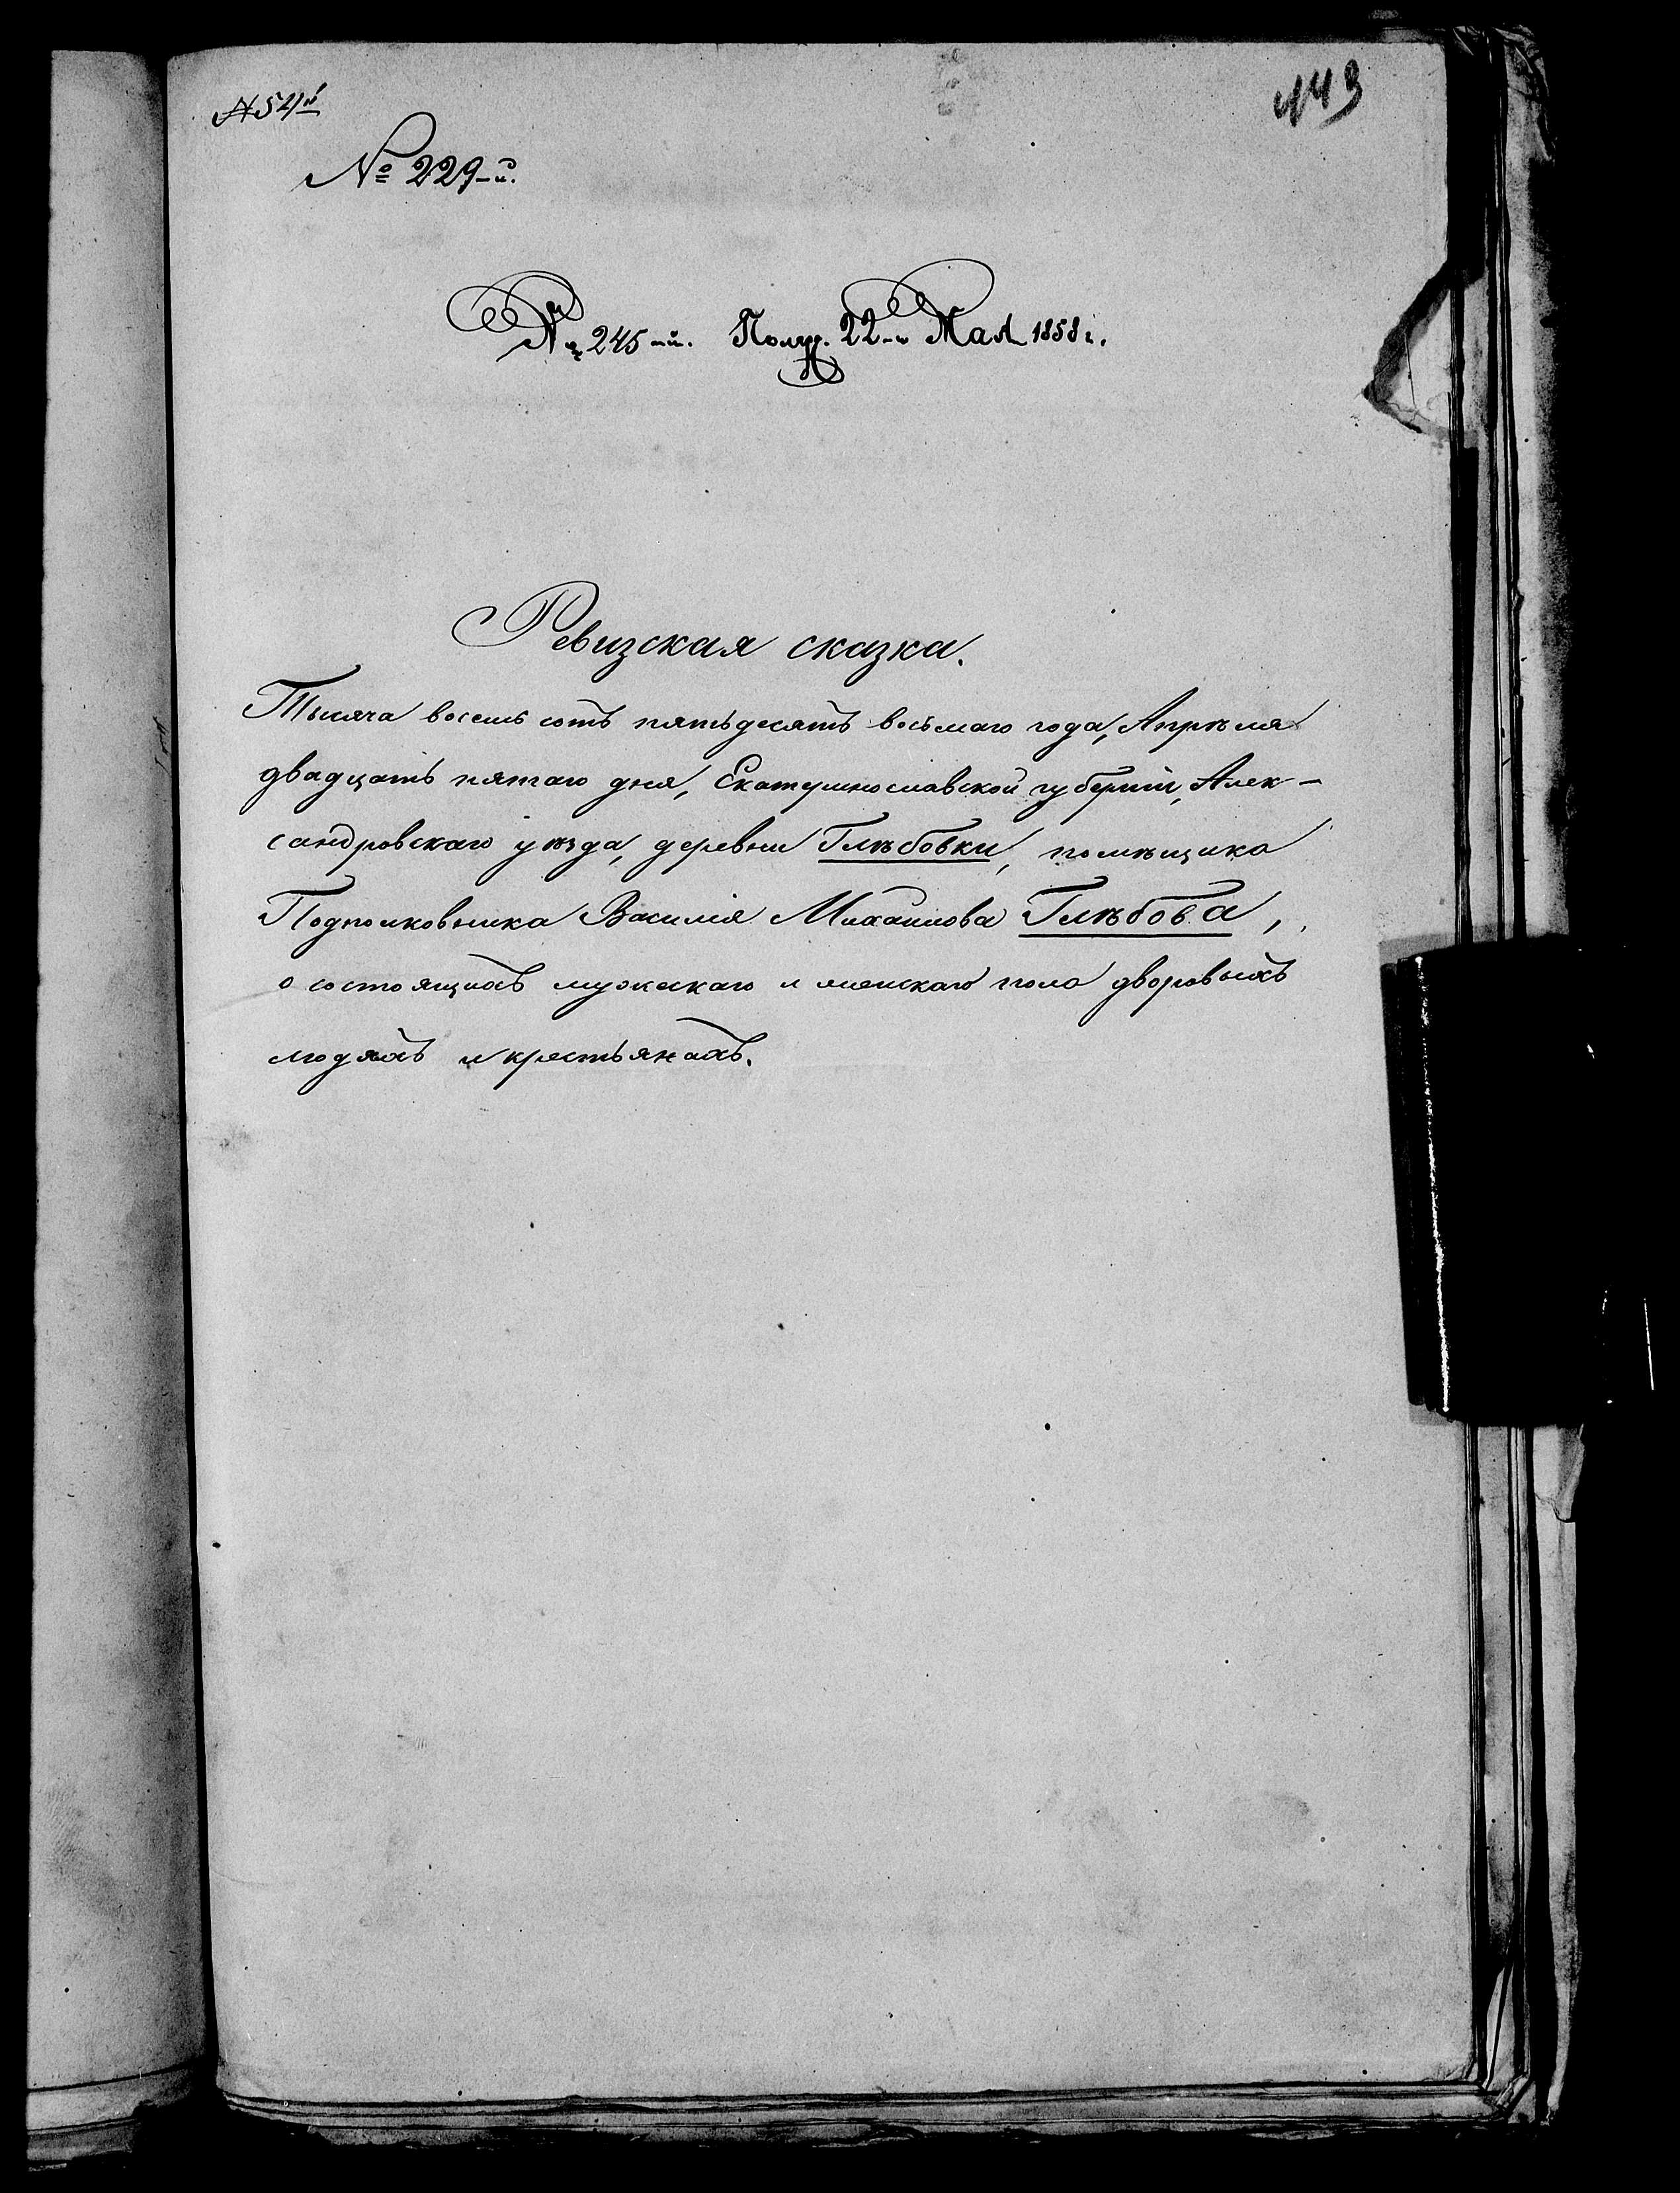 443
№ 229-й.
№ 245-й. Получ. 22-го Мая 1858 г.
Ревизская сказка.
Тысяча восемь сотъ пятьдесятъ восьмаго года, Апрѣля
двадцать пятаго дня, Екатеринославской губерніи, Алек-
сандровскаго уѣзда, деревни Глѣбовки, помѣщика
Подполковника Василія Михайлова Глѣбова,
о состоящихъ мужескаго и женскаго пола дворовыхъ
людяхъ и крестьянахъ.